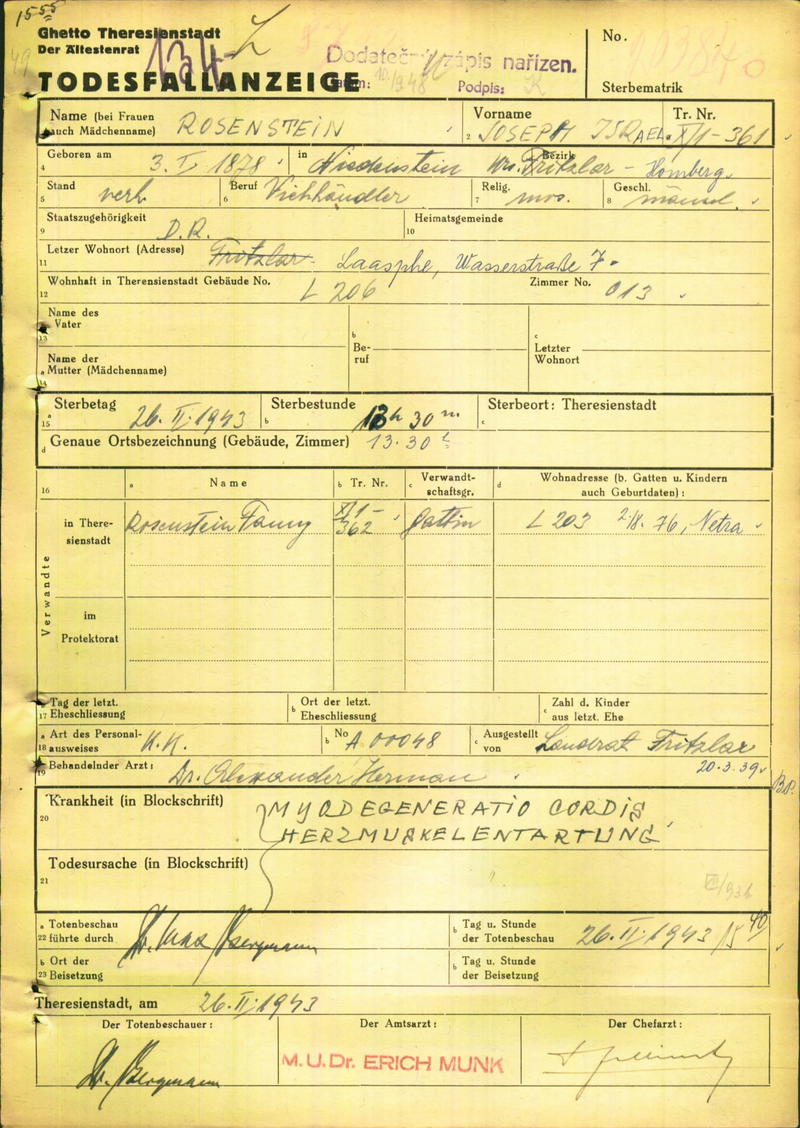 15 55
Ghetto Theresienstadt
Der Ältestenrat
134-Z
Dodatečný zápis nařízen.
Podpis:
No.
TODESFALLANZEIGE
Sterbematrik
Name (bei Frauen auch Mädchenname) ROSENSTEIN
Vorname JOSEPH ISRAEL
Tr. Nr. X/1-361
Geboren am 3. I. 1878 in Niedenstein Krs. Fritzlar - Homberg
Bezirk
Stand verh.
Beruf Viehhändler
Relig. mos.
Geschl. männl.
Staatszugehörigkeit D.R.
Heimatsgemeinde
Letzer Wohnort (Adresse) Fritzlar Laasphe, Wasserstraße 7
Wohnhaft in Theresienstadt Gebäude No. L 206
Zimmer No. 013
Name des Vater
Beruf
Letzter Wohnort
Name der Mutter (Mädchenname)
Sterbetag 26. II. 1943
Sterbestunde 13h 30 m.
Sterbeort: Theresienstadt
Genaue Ortsbezeichnung (Gebäude, Zimmer) 13.30
16 a Name
b Tr. Nr.
c Verwandtschaftsgr.
d Wohnadresse (b. Gatten u. Kindern auch Geburtdaten):
Verwandte
in Theresienstadt
Rosenstein Fanny X/1-362 Gattin L 203 2/8. 76, Netra
im Protektorat
Tag der letzt. Eheschliessung
Ort der letzt. Eheschliessung
Zahl d. Kinder aus letzt. Ehe
Art des Personalausweises K.K.
No A 00048
Ausgestellt von Landrat Fritzlar
20.3.39
Behandelnder Arzt: Dr. Alexander Herman
Krankheit (in Blockschrift) MYODEGENERATIO CORDIS
HERZMUSKELENTARTUNG
Todesursache (in Blockschrift)
Totenbeschau führte durch Dr. Max Bergmann
Tag u. Stunde der Totenbeschau 26. II. 1943 15 40
Ort der Beisetzung
Tag u. Stunde der Beisetzung
Theresienstadt, am 26. II. 1943
Der Totenbeschauer:
Der Amtsarzt:
Der Chefarzt:
Dr. Bergmann
M. U. Dr. ERICH MUNK